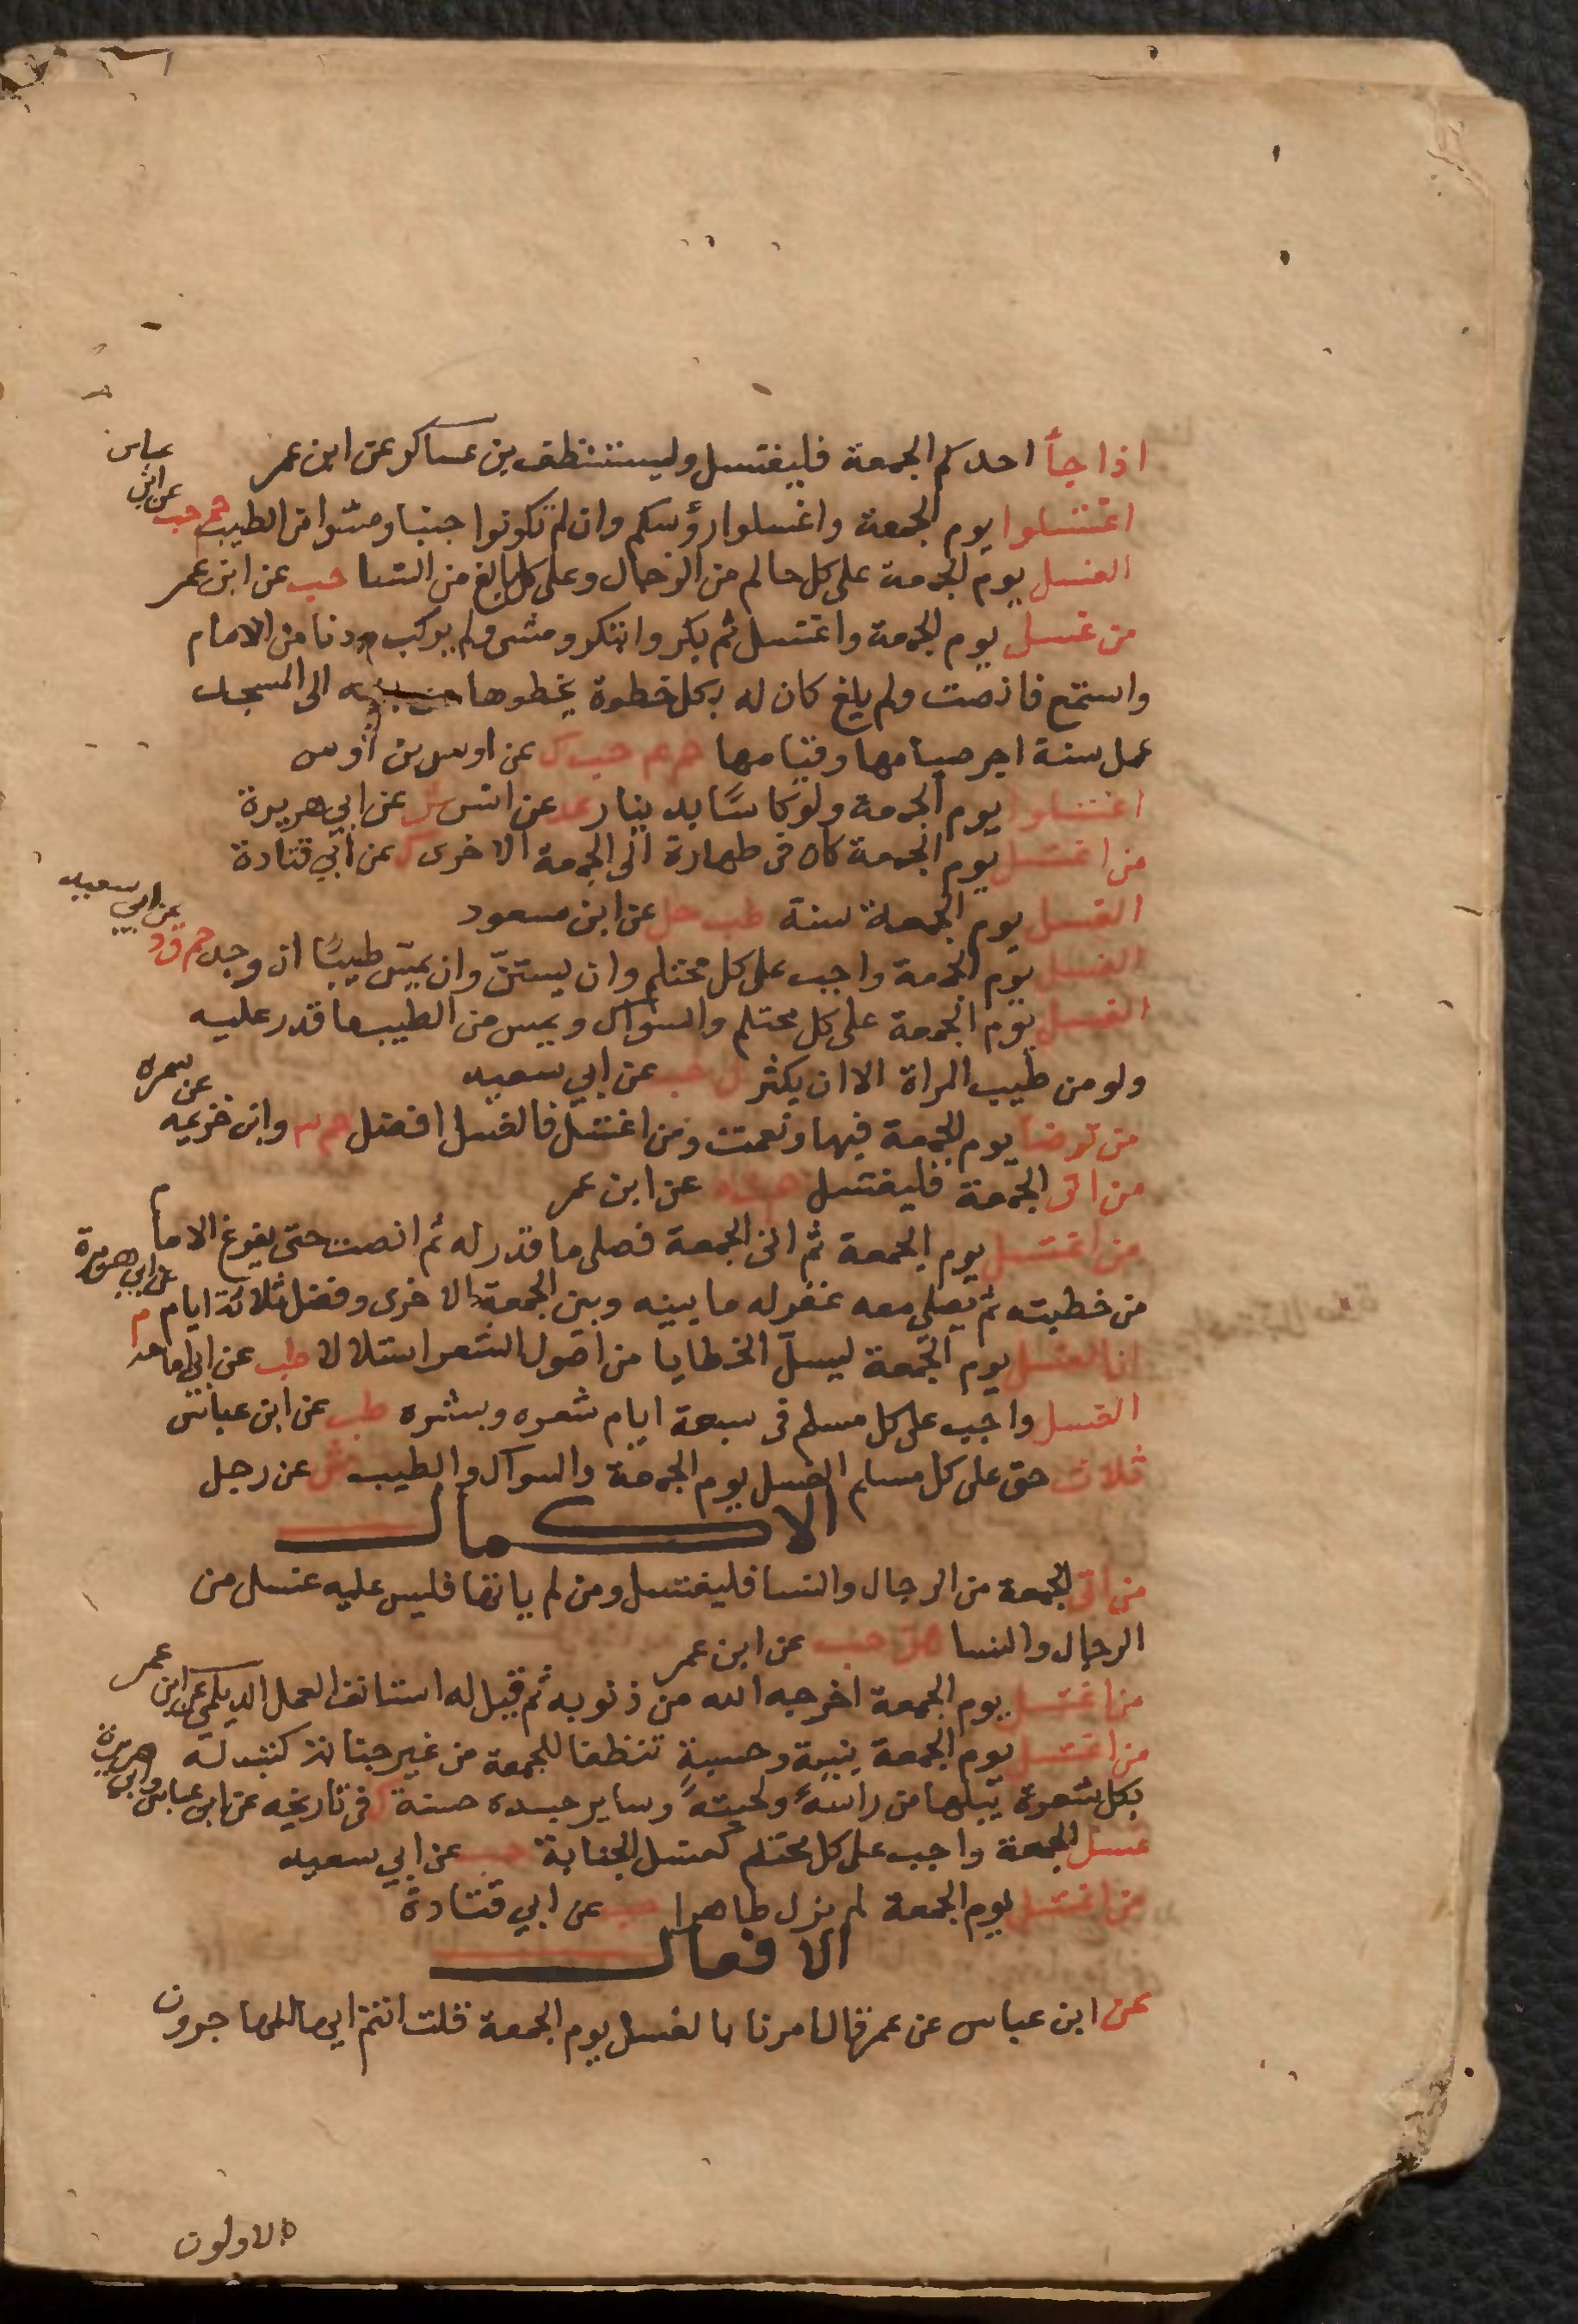 اذا جأ احدكم الجمعة فليغتسل وليستنظف بن عساكر عن ابن عمر
اغتسلوا يوم الجمعة واغسلوا رؤسكم وان لم تكونوا جنبا ومسوا من الطيب حم حب عن ابن عباس
الغسل يوم الجمعة على كل حالم من الرجال وعلى كل بالغ من النسا حب عن ابن عمر
من غسل يوم الجمعة واغتسل ثم بكر وابتكر ومشى ولم يركب ودنا من الامام
واستمع فانصت ولم يلغ كان له بكل خطوة يخطوها الى المسجد
عمل سنة اجر صيامها وقيامها حم عم حب ك عن اوس بن أوس
اغتسلوا يوم الجمعة ولو كاسًا بدينار عد عن انس ش عن ابي هريرة
من اغتسل يوم الجمعة كان في طهارة الى الجمعة الاخرى ك عن ابي قتادة
الغسل يوم الجمعة سنة طب حل عن ابن مسعود
الغسل يوم الجمعة واجب على كل محتلم وان يستنّ وان يمسّ طيبًا ان وجد حم ق د عن ابي سعيد
الغسل يوم الجمعة على كل محتلم والسواك ويمس من الطيب ما قدر عليه
ولو من طيب المراة الا ان يكثر ن حب عن ابي سعيد
من توضا يوم الجمعة فبها ونعمت ومن اغتسل فالغسل افضل حم وابن خزيمه عن سمره
من اتى الجمعة فليغتسل عن ابن عمر
من اغتسل يوم الجمعة ثم اتى الجمعة فصلى ما قدر له ثم انصت حتى يفرغ الامام
من خطبته ثم يصلي معه غفر له ما بينه وبين الجمعة الاخرى وفضل ثلاثة ايام م عن ابي هريرة
ان الغسل يوم الجمعة ليسلّ الخطايا من اصول الشعر استلالا طب عن ابي امامه
الغسل واجب على كل مسلم في سبعة ايام شعره وبشره طب عن ابن عباس
ثلاث حق على كل مسلم الغسل يوم الجمعة والسواك والطيب ش عن رجل
الاكمال
من اتى الجمعة من الرجال والنسا فليغتسل ومن لم ياتها فليس عليه غسل من
الرجال والنسا هق حب عن ابن عمر
من اغتسل يوم الجمعة اخرجه الله من ذنوبه ثم قيل له استانف العمل الديلمي عن ابن عمر
من اغتسل يوم الجمعة بنية وحسبة تنظفا للجمعة من غير جنابة كتب له
بكل شعرة يبلها من راسه ولحيته وساير جسده حسنة ك في تاريخه عن ابن عباس وابي هريرة
غسل الجمعة واجب على كل محتلم كغسل الجنابة حب عن ابي سعيد
من اغتسل يوم الجمعة لم يزل طاهرا حب عن ابي قتادة
الافعال
عن ابن عباس عن عمر قال امرنا بالغسل يوم الجمعة قلت انتم ايها المهاجرون
الاولون